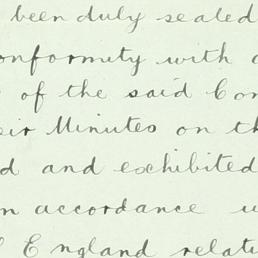 been duly sealed
conformity with
of the said Com
eir Minutes on th
d and exhibited
n accordance w
England relati